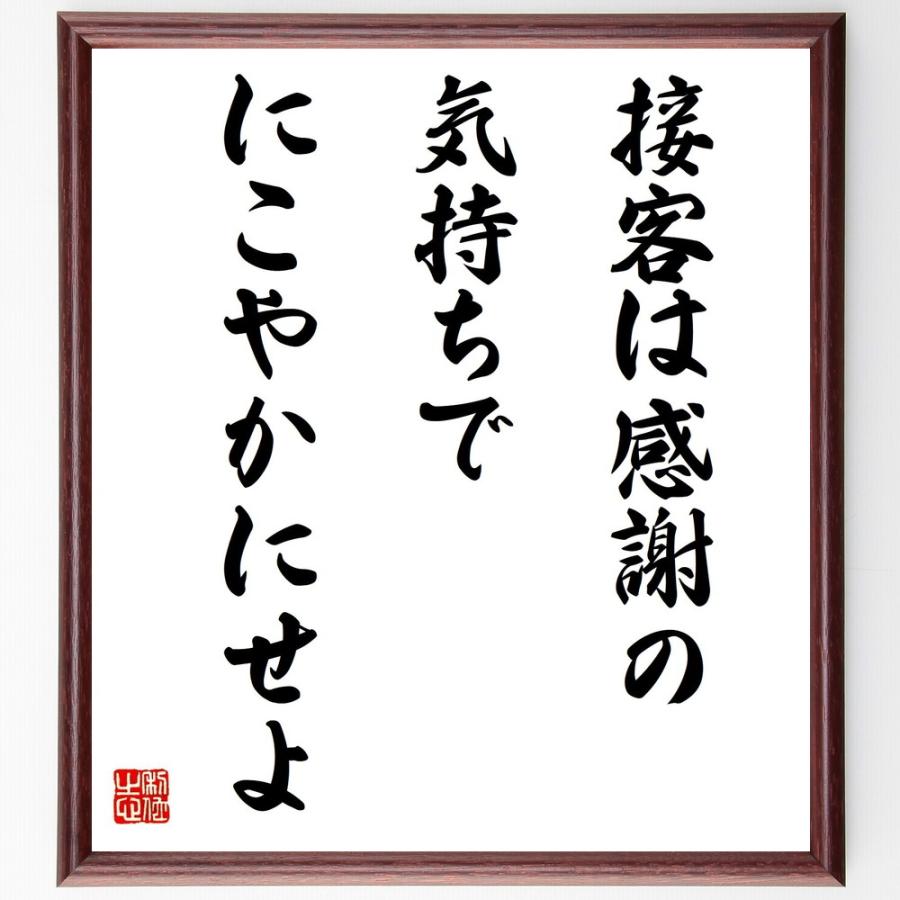 接客は感謝の
気持ちで
にこやかにせよ